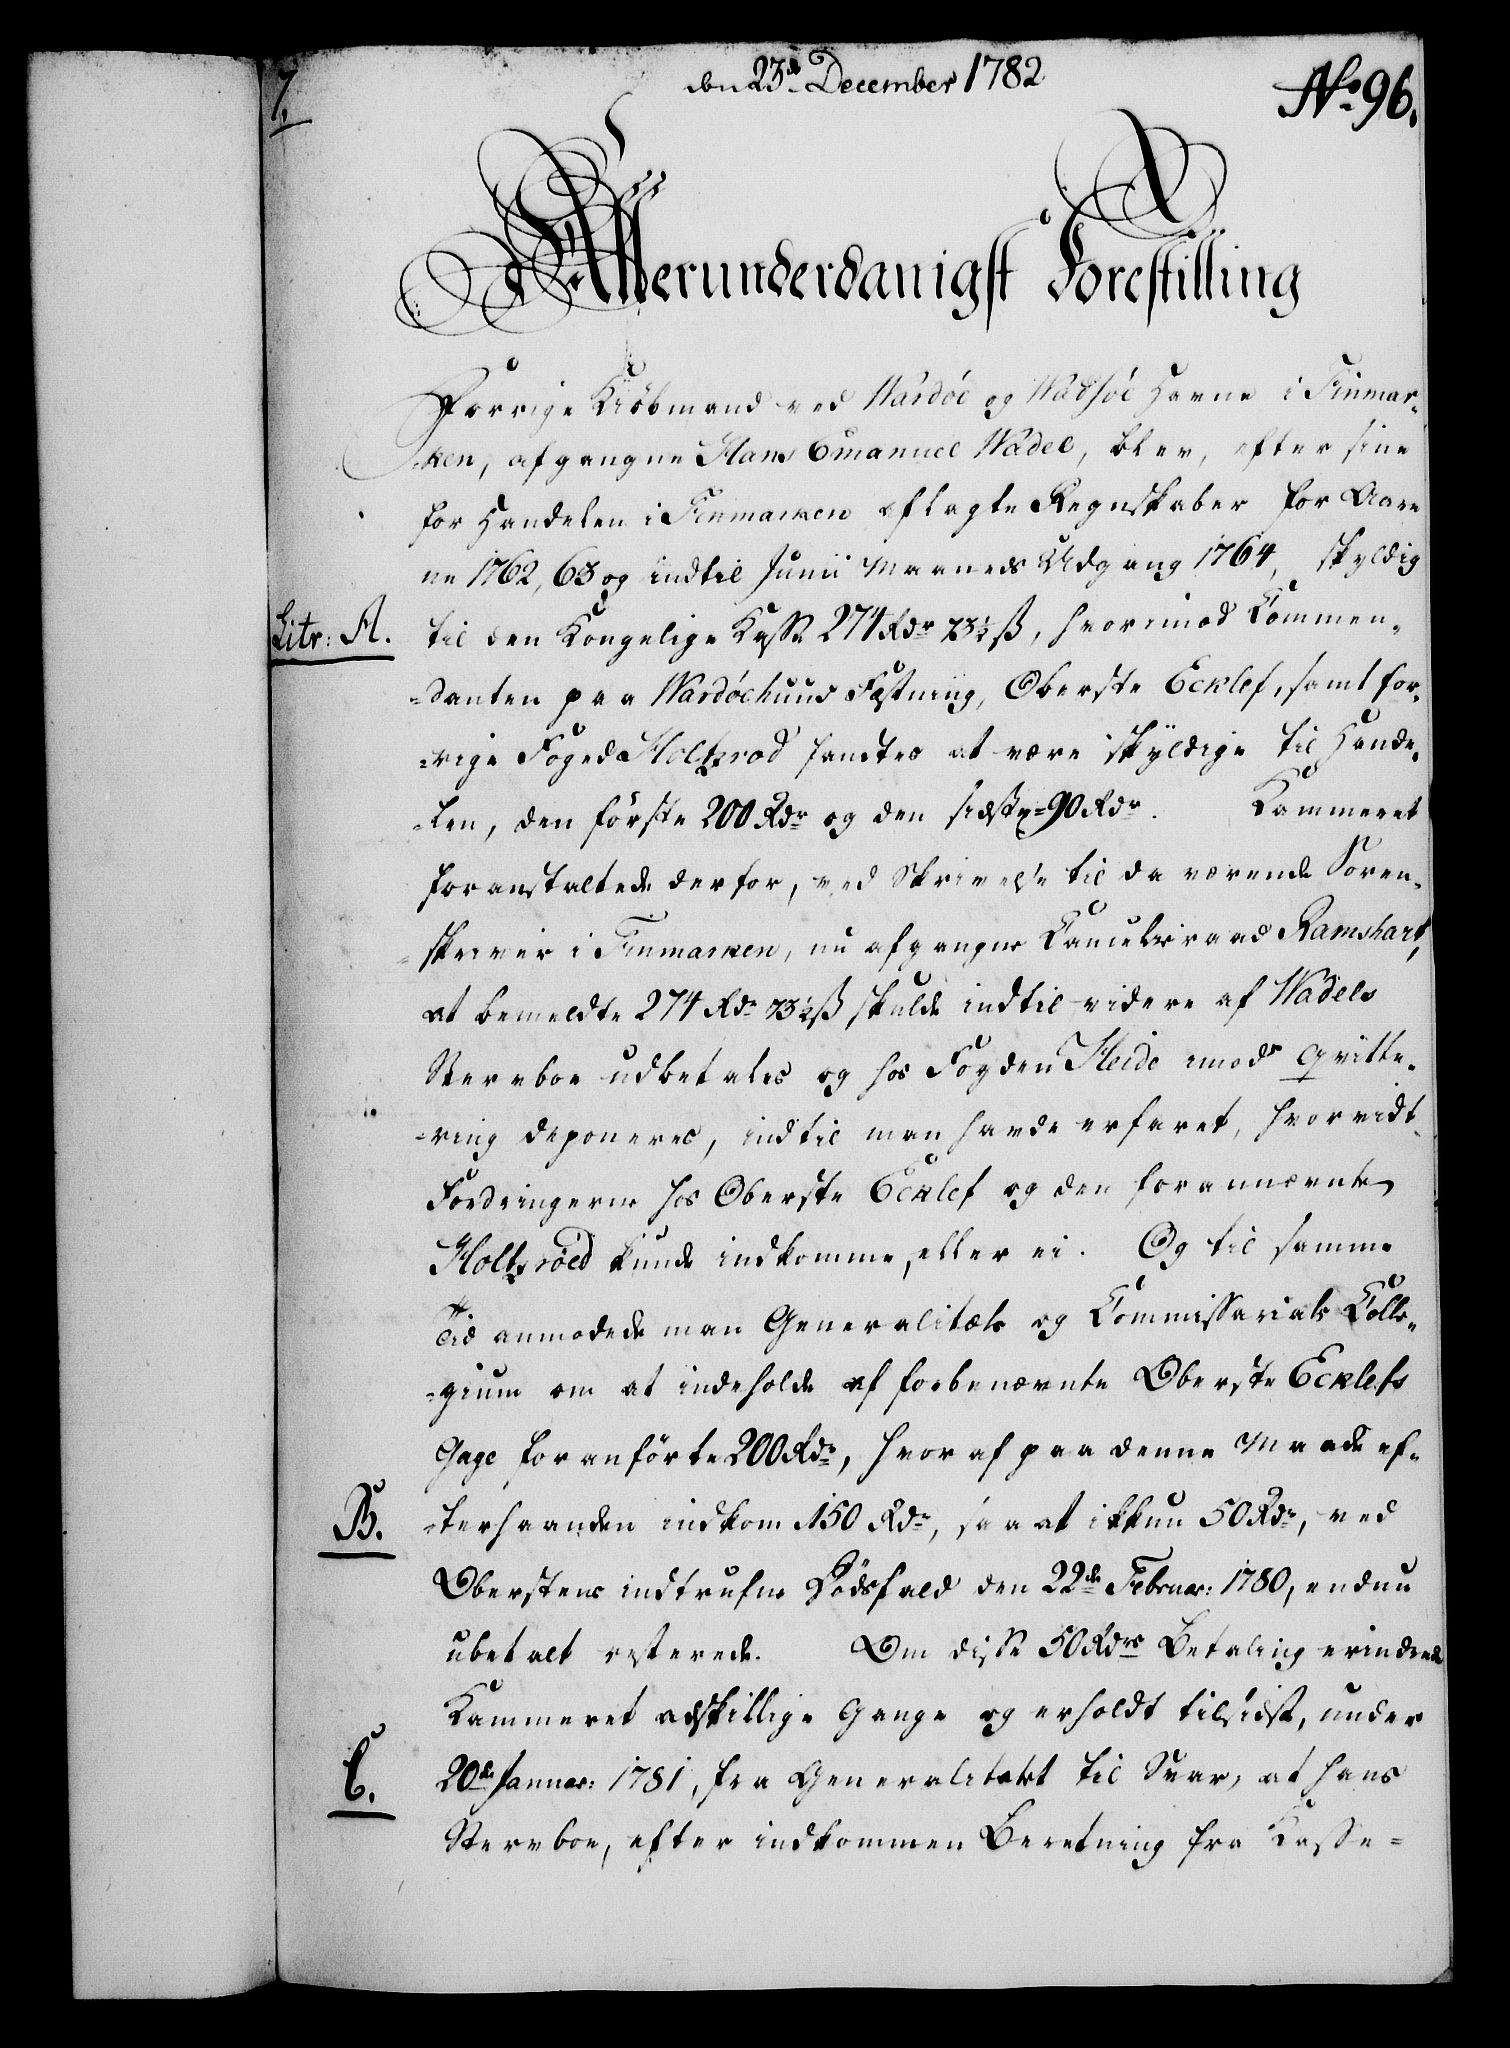 7.
den 23de December 1782
No. 96.
Allerunderdanigst Forestilling
Forrige Kiöbmand ved Wardöe og Wadsöe Havne i Finmar-
-ken, afgangne Hans Emanuel Wadel, blev, efter sine
for Handelen i Finmarken aflagte Regnskaber for Aare
ne 1762, 63 og indtil Junii Maaneds Udgang 1764, skyldig
Litr: A.
til den Kongelige Kasse 274 Rdr 73½ ß, hvorimod Commen-
-danten paa Wardöehuus Fæstning, Oberste Ecklef, samt for-
-rige Foged Holtzrod fandtes at være skyldige til Hande-
-len, den förste 200 Rdr og den sidste 90 Rdr. Kammeret
foranstaltede derfor, ved Skrivelse til da værende Soren-
-skriver i Finmarken, nu afgangne Cancelieraad Ramshart,
at bemeldte 274 Rdr 73½ ß skulde indtil videre af Wadels
Stervboe udbetales og hos Fogden Heide imod qvitte-
-ring deponeres, indtil man havde erfaret, hvorvidt
Fordringerne hos Oberste Ecklef og den forannævnte
Holtzröed kunde indkomme, eller ei. Og til samme
Tid anmodede man Generalitæts og Commissariats Colle-
-gium om at indeholde af forbenævnte Oberste Ecklefs
Gage foranförte 200 Rdr, hvoraf paa denne Maade ef-
B.
-terhaanden indkom 150 Rdr, saa at ikkun 50 Rdr, ved
Oberstens indtrufne Dödsfald den 22de Februar: 1780, endnu
ubetalt resterede. Om disse 50 Rdrs Betaling erindrede
Kammeret adskillige Gange og erholdt tilsidst, under
C.
20de Januar: 1781, fra Generalitetet til Svar, at hans
Stervboe, efter indkommen Beretning fra Kasse-